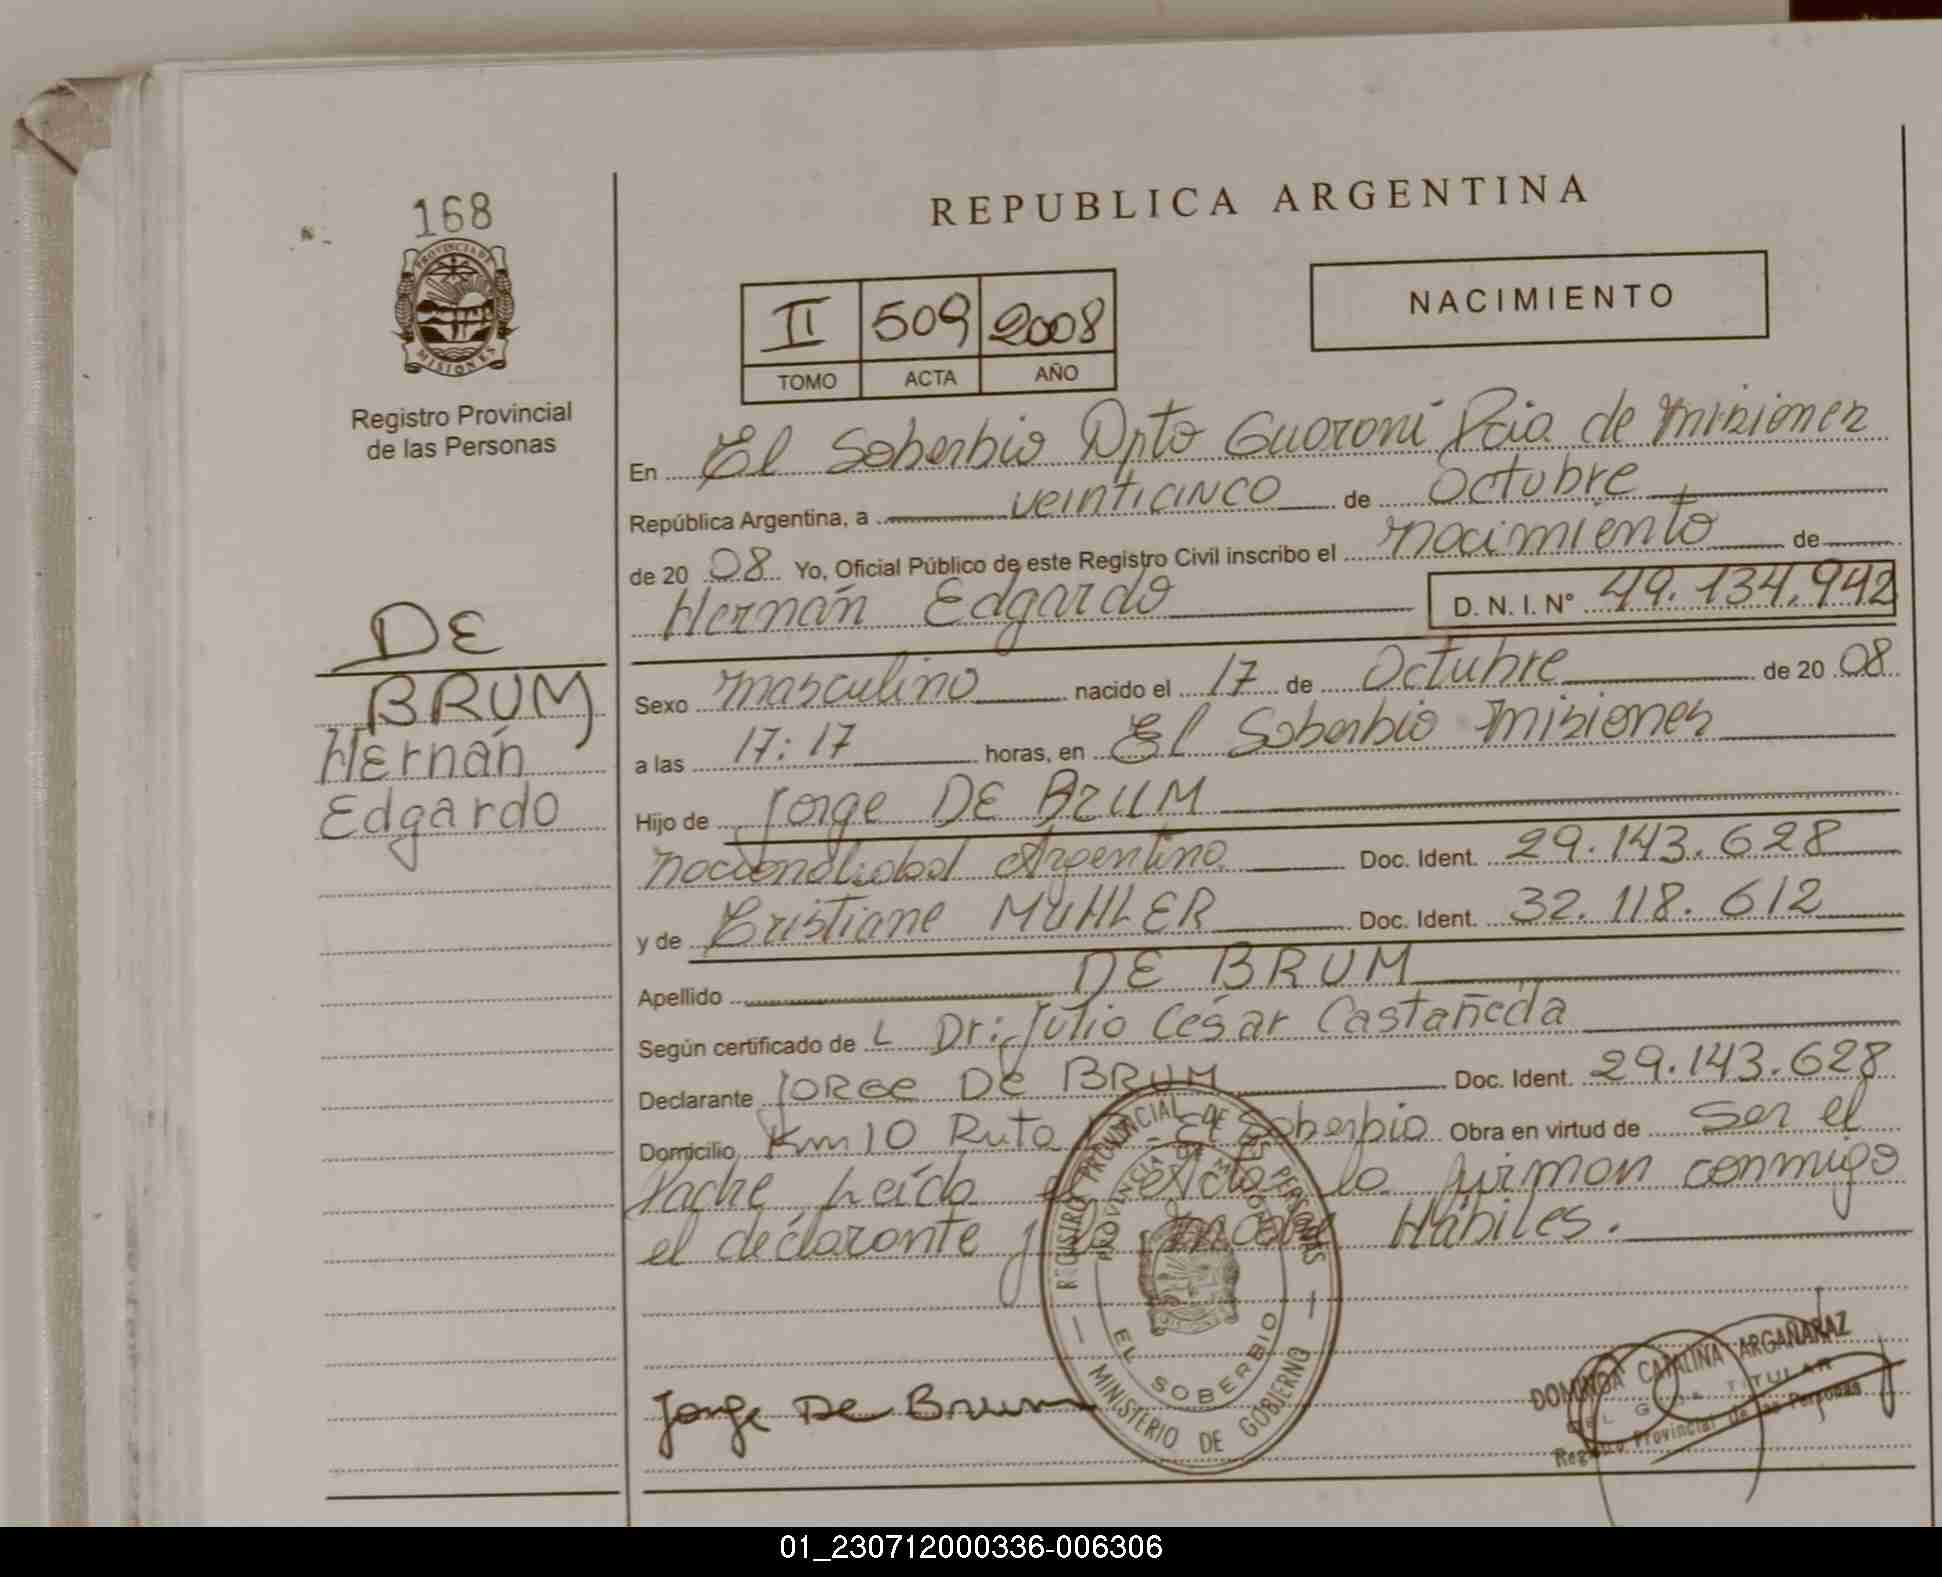 168
PROVINCIA DE
MISIONES
Registro Provincial
de las Personas
DE
BRUM
Hernán
Edgardo
REPUBLICA ARGENTINA
II 509 2008
TOMO ACTA AÑO
NACIMIENTO
En El Soberbio Dpto Guaraní Pcia de Misiones
República Argentina, a veinticinco de Octubre
de 2008 Yo, Oficial Público de este Registro Civil inscribo el nacimiento de
Hernán Edgardo D. N. I. Nº 49.134.942
Sexo masculino nacido el 17 de Octubre de 2008
a las 17:17 horas, en El Soberbio Misiones
Hijo de Jorge DE BRUM
nacionalidad Argentina Doc. Ident. 29.143.628
y de Cristiane MUHLER Doc. Ident. 32.118.612
Apellido DE BRUM
Según certificado de L Dr: Julio César Castañeda
Declarante JORGE DE BRUM Doc. Ident. 29.143.628
Domicilio Km 10 Ruta El Soberbio Obra en virtud de Ser el
Padre Leída el Acta la firman conmigo
el declarante Hábiles.
REGISTRO PROVINCIAL DE LAS PERSONAS
PROVINCIA DE MISIONES
EL SOBERBIO
MINISTERIO DE GOBIERNO
Jorge De Brum
DOMINGA CATALINA ARGAÑARAZ
DELEGADA TITULAR
Registro Provincial de las Personas
01_230712000336-006306